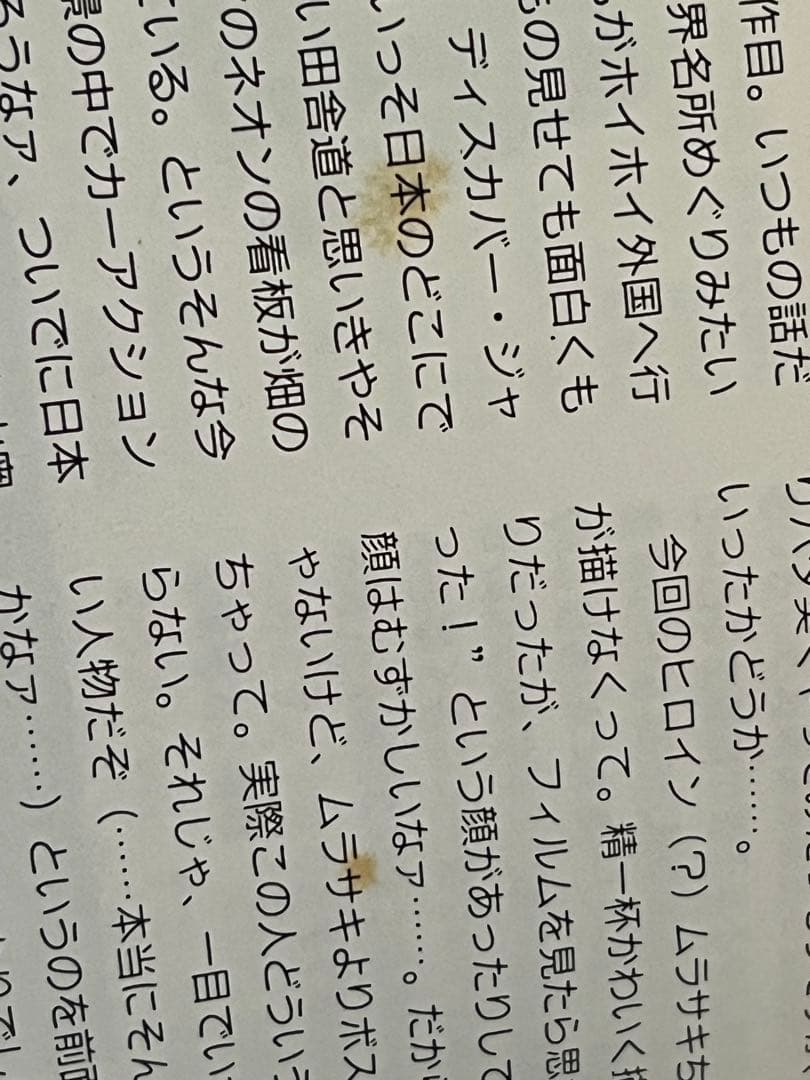 作目。いつもの話だ
界名所めぐりみたい
がホイホイ外国へ行
もの見せても面白くも
ディスカバー・ジャ
いっそ日本のどこにで
い田舎道と思いきやそ
のネオンの看板が畑の
ている。というそんな今
景の中でカーアクション
ろうなァ、ついでに日本
いったかどうか……。
今回のヒロイン（？）ムラサキち
が描けなくって。精一杯かわいく
りだったが、フィルムを見たら思
った！”という顔があったりして
顔はむずかしいなァ……。だか
やないけど、ムラサキよりボス
ちゃって。実際この人どうい
らない。それじゃ、一目でい
い人物だぞ（……本当にそん
かなァ……）というのを前面